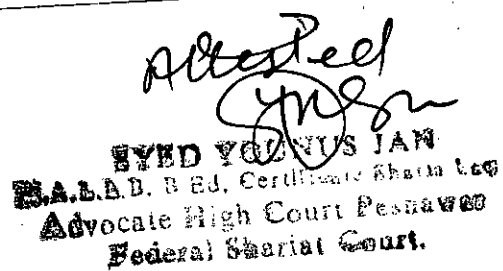 Attested
SYED YOUNUS JAN
B.A.L.L.B. B Ed. Certificate Sharia Law
Advocate High Court Peshawar
Federal Shariat Court.